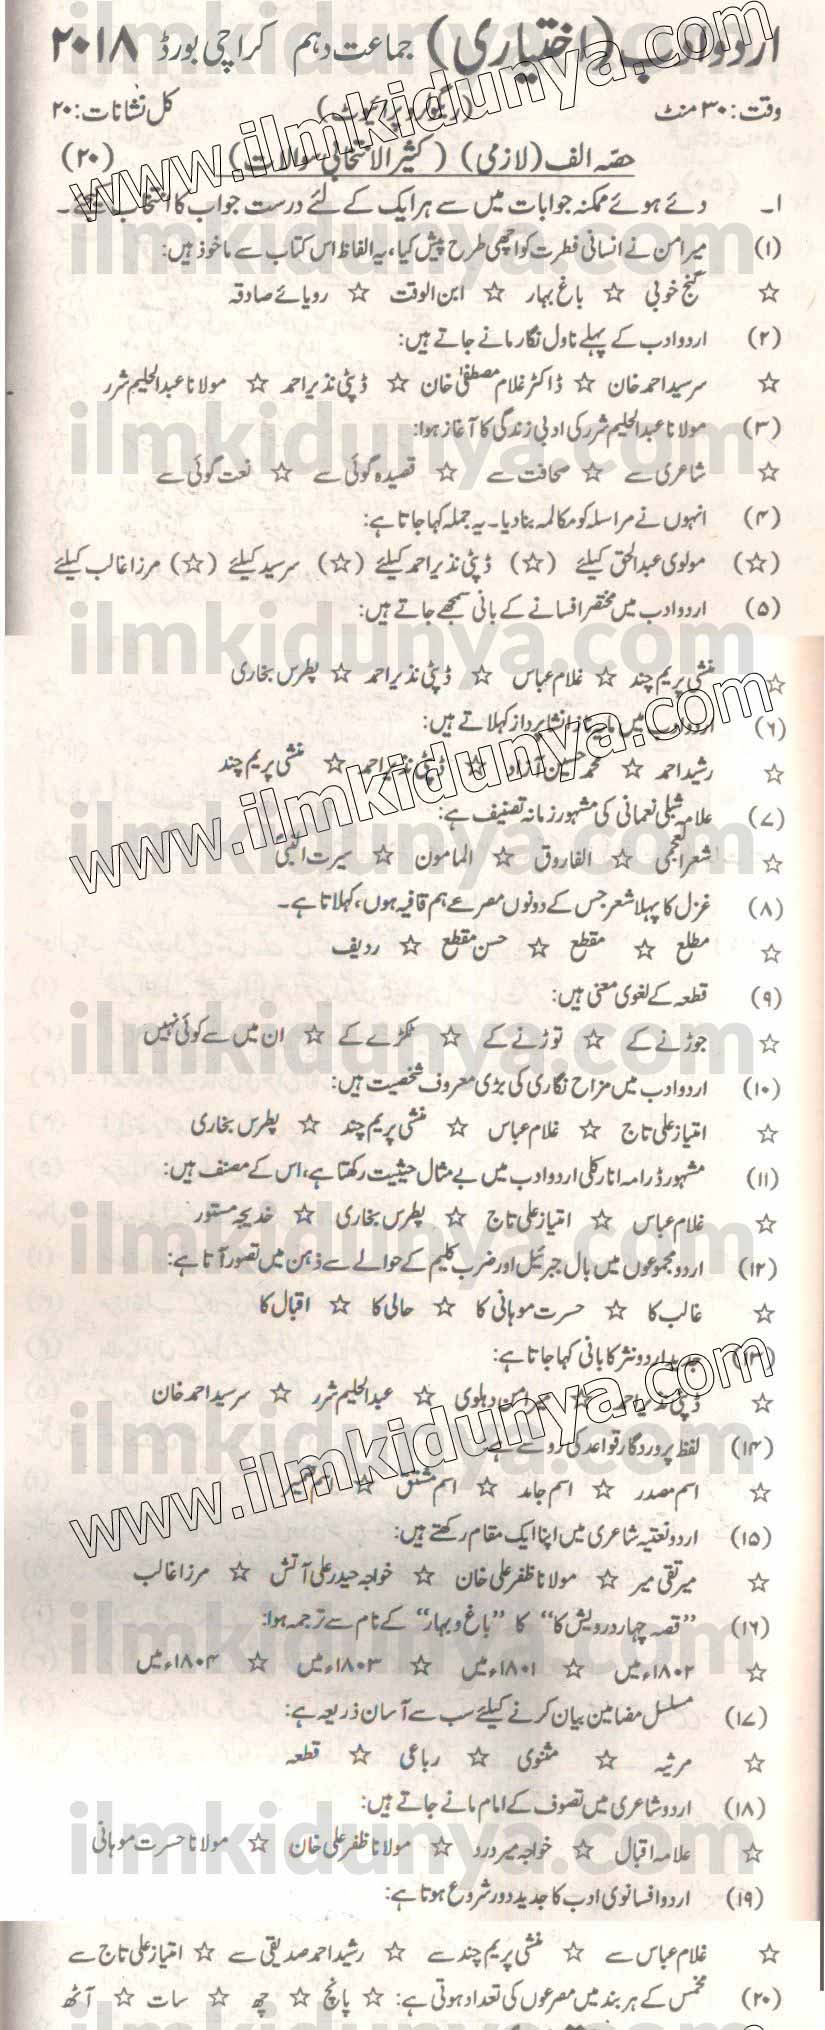 اردو ادب (اختیاری) جماعت دہم کراچی بورڈ ۲۰۱۸
وقت: ۳۰ منٹ (ریگولر و پرائیوٹ) کل نشانات: ۲۰
حصّہ الف (لازمی) (کثیر الانتخابی سوالات) (۲۰)
۱۔ دئے ہوئے ممکنہ جوابات میں سے ہر ایک کے لئے درست جواب کا انتخاب کیجئے۔
(۱) میرامن نے انسانی فطرت کو اچھی طرح پیش کیا، یہ الفاظ اس کتاب سے ماخوذ ہیں:
☆ گنج خوبی ☆ باغ بہار ☆ ابن الوقت ☆ رویائے صادقہ
(۲) اردو ادب کے پہلے ناول نگار مانے جاتے ہیں:
☆ سرسید احمد خان ☆ ڈاکٹر غلام مصطفیٰ خان ☆ ڈپٹی نذیر احمد ☆ مولانا عبدالحلیم شرر
(۳) مولانا عبدالحلیم شرر کی ادبی زندگی کا آغاز ہوا:
☆ شاعری سے ☆ صحافت سے ☆ قصیدہ گوئی سے ☆ نعت گوئی سے
(۴) انہوں نے مراسلہ کو مکالمہ بنا دیا۔ یہ جملہ کہا جاتا ہے:
(☆) مولوی عبدالحق کیلئے (☆) ڈپٹی نذیر احمد کیلئے (☆) سرسید کیلئے (☆) مرزا غالب کیلئے
(۵) اردو ادب میں مختصر افسانے کے بانی سمجھے جاتے ہیں:
☆ منشی پریم چند ☆ غلام عباس ☆ ڈپٹی نذیر احمد ☆ پطرس بخاری
(۶) اردو ادب میں مایہ ناز انشا پرداز کہلاتے ہیں:
☆ رشید احمد ☆ محمد حسین آزاد ☆ ڈپٹی نذیر احمد ☆ منشی پریم چند
(۷) علامہ شبلی نعمانی کی مشہور زمانہ تصنیف ہے:
☆ شعر العجمی ☆ الفاروق ☆ المامون ☆ سیرت النبیؐ
(۸) غزل کا پہلا شعر جس کے دونوں مصرعے ہم قافیہ ہوں، کہلاتا ہے۔
☆ مطلع ☆ مقطع ☆ حسن مقطع ☆ ردیف
(۹) قطعہ کے لغوی معنی ہیں:
☆ جوڑنے کے ☆ توڑنے کے ☆ ٹکڑے کے ☆ ان میں سے کوئی نہیں
(۱۰) اردو ادب میں مزاح نگاری کی بڑی معروف شخصیت ہیں:
☆ امتیاز علی تاج ☆ غلام عباس ☆ منشی پریم چند ☆ پطرس بخاری
(۱۱) مشہور ڈرامہ انارکلی اردو ادب میں بے مثال حیثیت رکھتا ہے، اس کے مصنف ہیں:
☆ غلام عباس ☆ امتیاز علی تاج ☆ پطرس بخاری ☆ خدیجہ مستور
(۱۲) اردو مجموعوں میں بال جبرئیل اور ضرب کلیم کے حوالے سے ذہن میں تصور آتا ہے:
☆ غالب کا ☆ حسرت موہانی کا ☆ حالی کا ☆ اقبال کا
(۱۳) جدید اردو نثر کا بانی کہا جاتا ہے:
☆ ڈپٹی نذیر احمد ☆ میر امن دہلوی ☆ عبدالحلیم شرر ☆ سرسید احمد خان
(۱۴) لفظ پروردگار قواعد کی رو سے ہے:
☆ اسم مصدر ☆ اسم جامد ☆ اسم مشتق ☆ اسم ضمیر
(۱۵) اردو نعتیہ شاعری میں اپنا ایک مقام رکھتے ہیں:
☆ میر تقی میر ☆ مولانا ظفر علی خان ☆ خواجہ حیدر علی آتش ☆ مرزا غالب
(۱۶) ”قصہ چہار درویش کا“ کا ”باغ و بہار“ کے نام سے ترجمہ ہوا:
☆ ۱۸۰۲ء میں ☆ ۱۸۰۱ء میں ☆ ۱۸۰۳ء میں ☆ ۱۸۰۴ء میں
(۱۷) مسلسل مضامین بیان کرنے کیلئے سب سے آسان ذریعہ ہے:
☆ مرثیہ ☆ مثنوی ☆ رباعی ☆ قطعہ
(۱۸) اردو شاعری میں تصوف کے امام مانے جاتے ہیں:
☆ علامہ اقبال ☆ خواجہ میر درد ☆ مولانا ظفر علی خان ☆ مولانا حسرت موہانی
(۱۹) اردو افسانوی ادب کا جدید دور شروع ہوتا ہے:
☆ غلام عباس سے ☆ منشی پریم چند سے ☆ رشید احمد صدیقی سے ☆ امتیاز علی تاج سے
(۲۰) مخمس کے ہر بند میں مصرعوں کی تعداد ہوتی ہے: ☆ پانچ ☆ چھ ☆ سات ☆ آٹھ
www.ilmkidunya.com
ilmkidunya.com